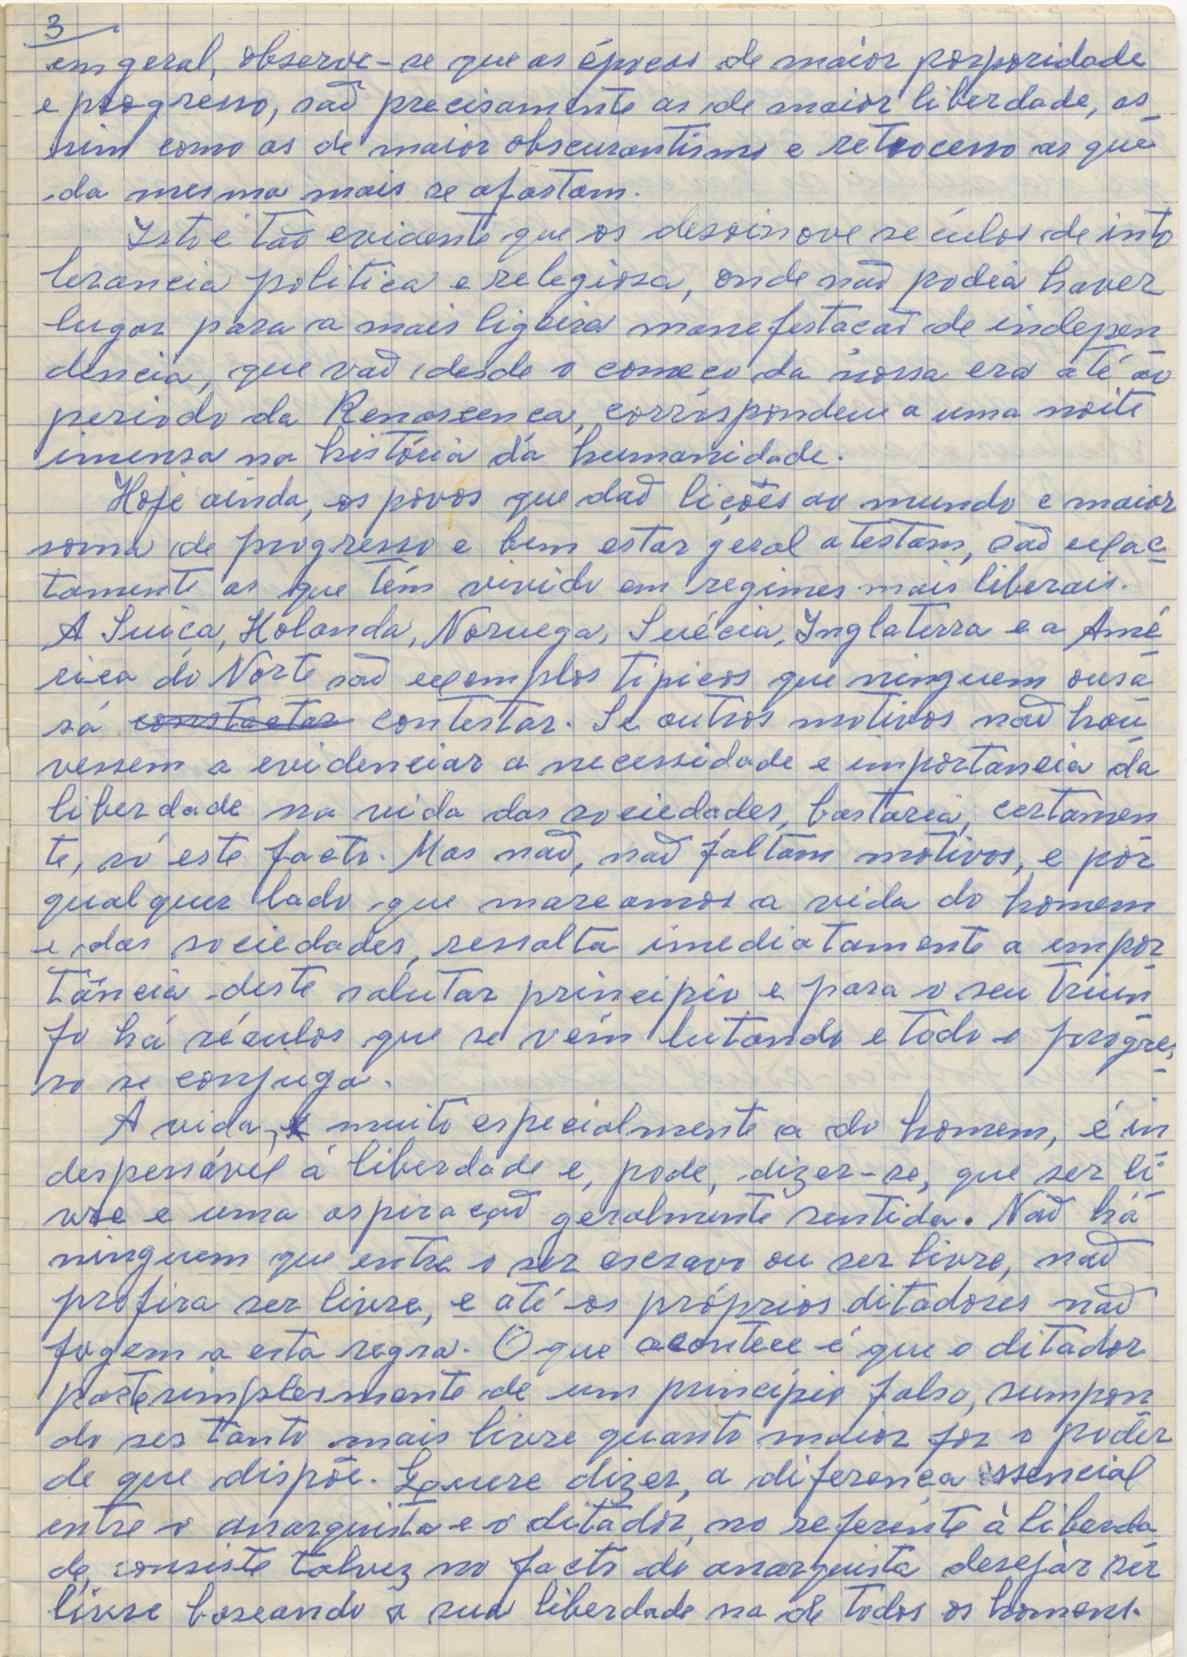 3
em geral, observe-se que as épocas de maior porporidade
e progresso, saõ precisamente as de maior liberdade, as
sim como as de maior obscurantismo e retrocesso as que
da mesma mais se afastam.
Isto é taõ evidente que os desoinove séculos de into
lerancia politica e relegiosa, onde naõ podia haver
lugar para a mais ligeira manefestacaõ de indepen
dencia, que vaõ desde o começo da nossa era até ao
periodo da Renascença, corréspondem a uma noite
imensa na história da humanidade.
Hoje ainda, os povos que daõ lições ao mundo e maior
soma de progresso e bem estar geral atestam, saõ exac
tamente os que têm vivido em regimes mais liberais.
A Suiça, Holanda, Noruega, Suécia, Inglaterra e a Amé
rica do Norte saõ exemplos tipicos que ninguem ousa
rá constactar contestar. Se outros motivos naõ hou
vessem a evidenciar a necessidade e importancia da
liberdade na vida das sociedades, bastaria, certamen
te, só este facto. Mas naõ, naõ faltam motivos, e por
qualquer lado que mareamos a vida do homem
e das sociedades, ressalta imediatamente a empor
tância deste salutar principio e para o seu triun
fo há séculos que se vêm lutando e todo o progre,
so se conjuga.
A vida, e muito especialmente a do homem, é in
despensável á liberdade e, pode, dizer-se, que ser li
vre e uma aspiraçaõ geralmente sentida. Naõ há
ninguem que entre o ser escravo ou ser livre, naõ
profira ser livre, e até os próprios ditadores naõ
fogem a esta regra. O que acontece é que o ditador
parte simplesmente de um principio falso, sumpon
do ser tanto mais livre quanto maior for o poder
de que dispõe. Quere dizer, a diferença essencial
entre o anarquista e o ditador, no referente á liberda
de, consiste talvez no facto do anarquista desejar ser
livre baseando a sua liberdade na de todos os homens.